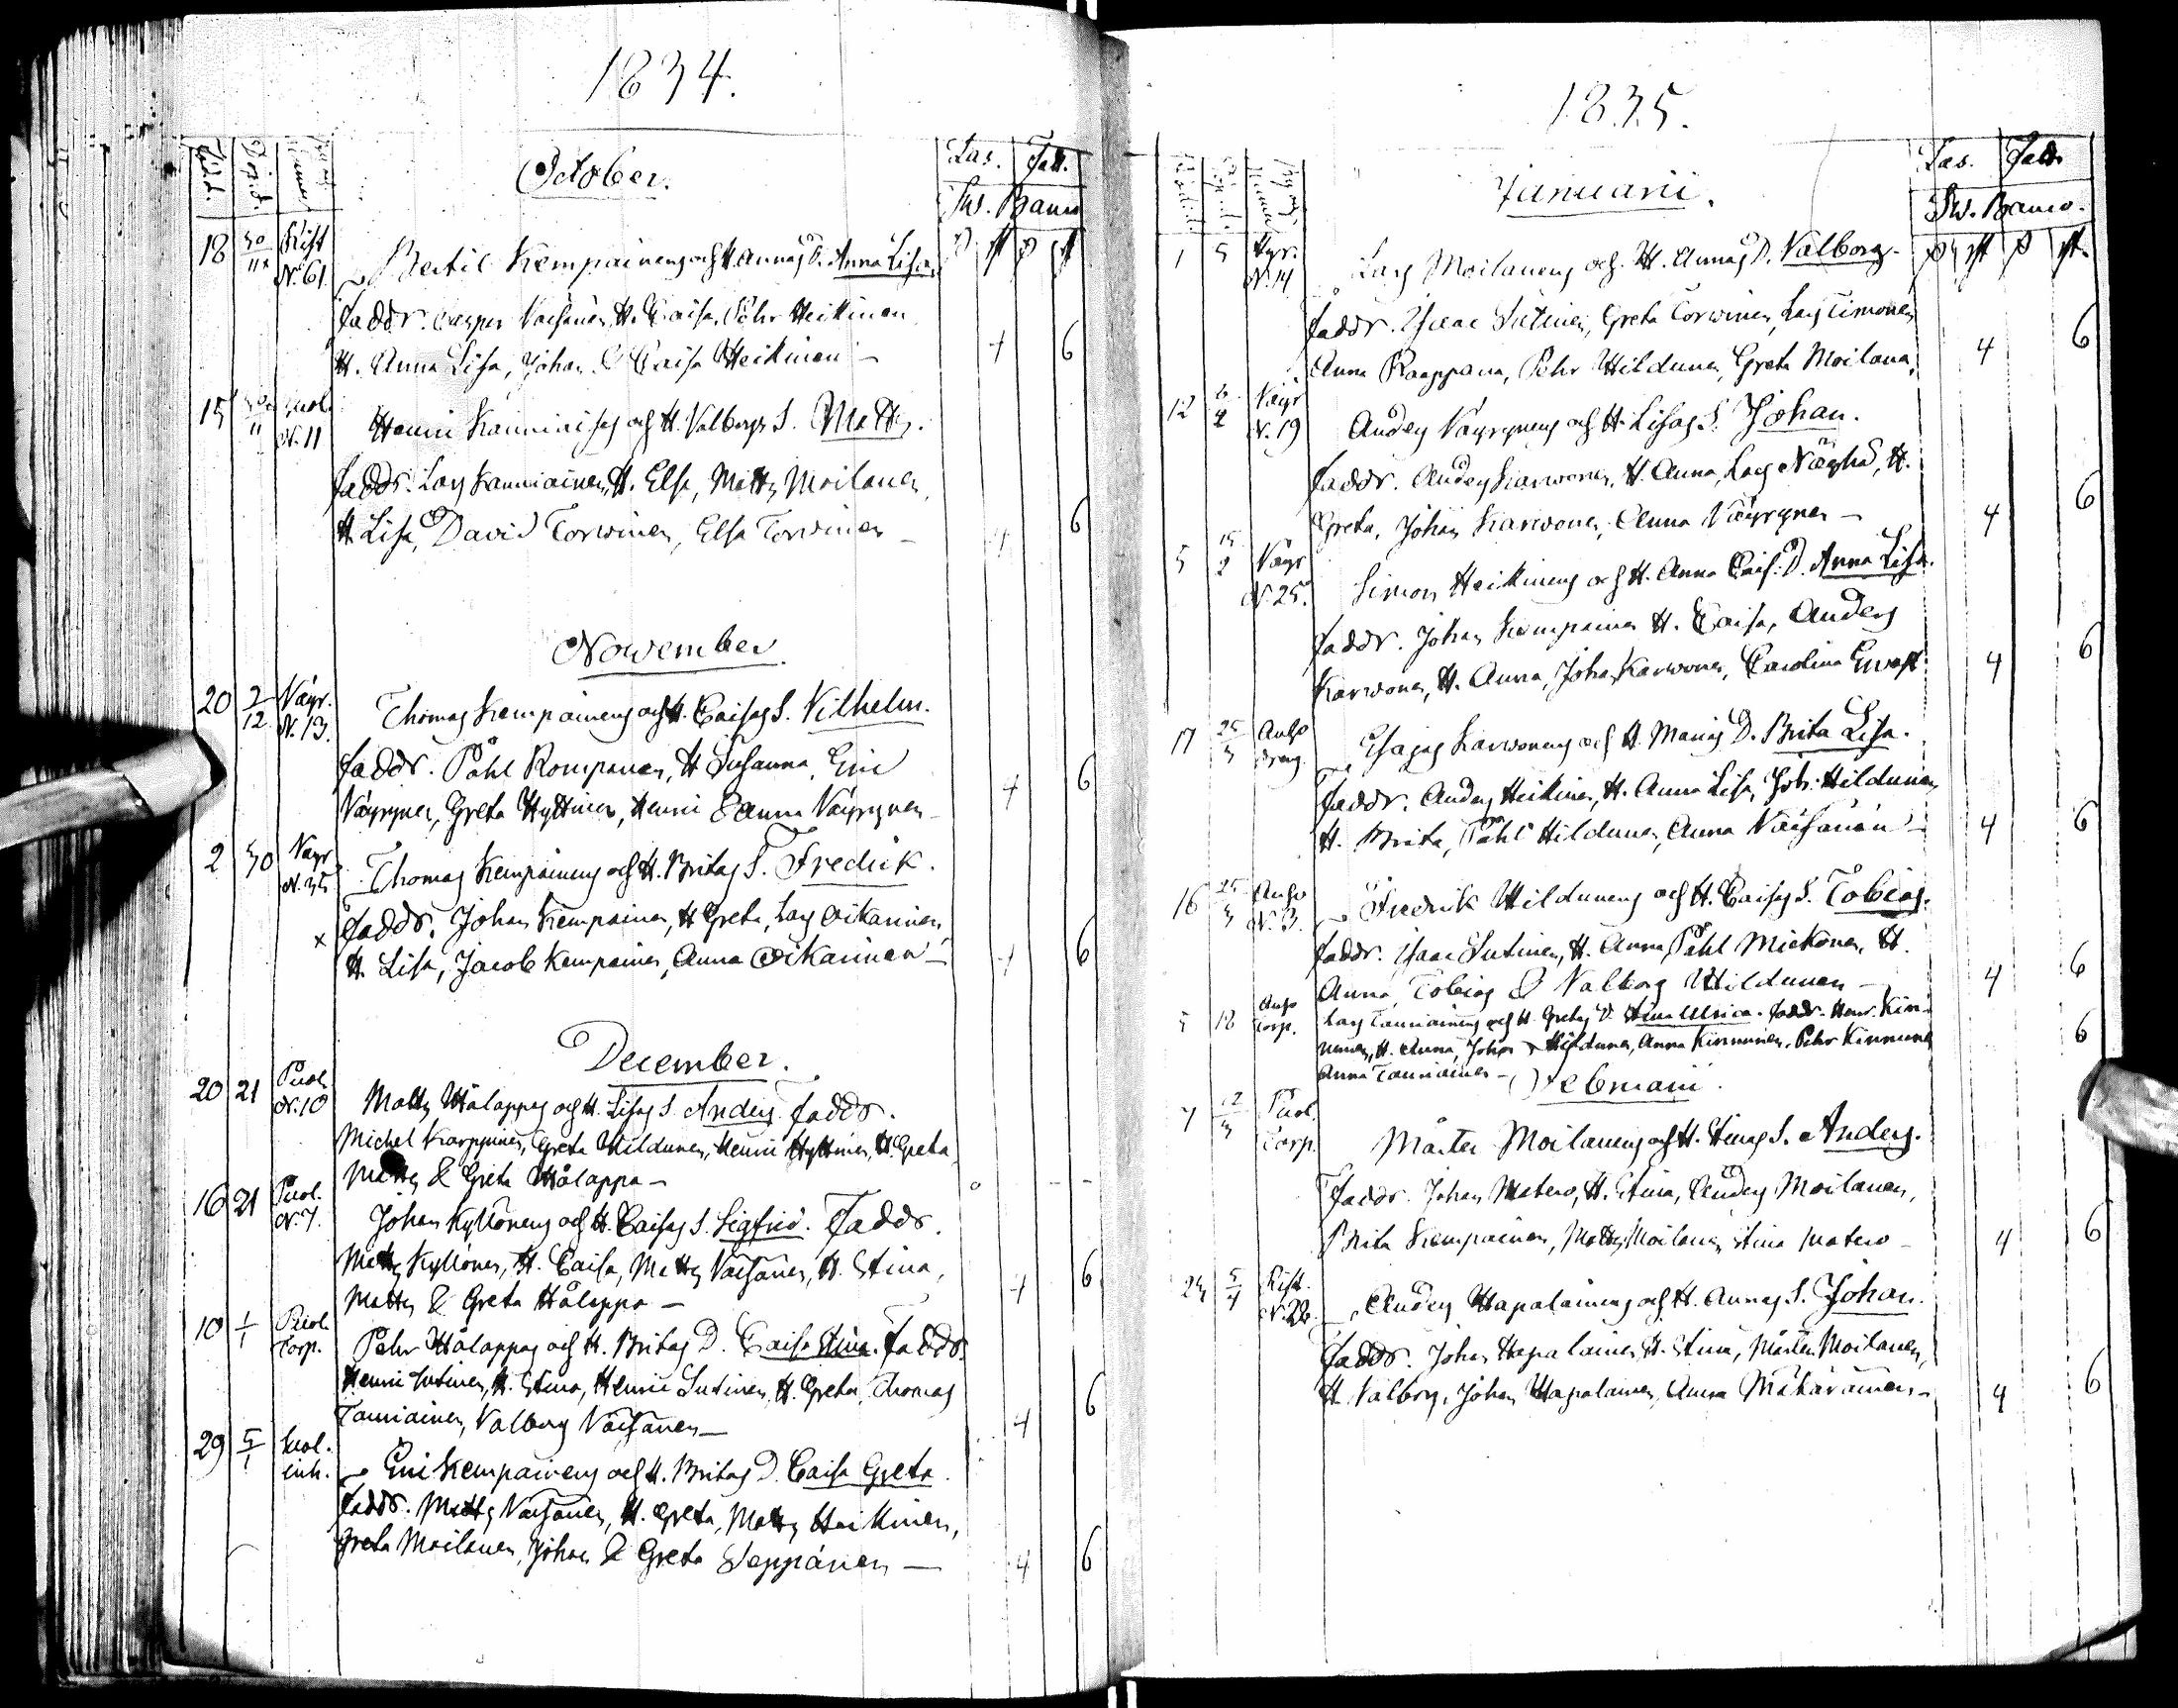 1834.
Föd. d. Döp. d. By och Numer October. Las. Fatt.
Sw. Banco
18 30/11 Rist N. 61 Bertil Kempainens och H. Annas D. Anna Lisa.
Faddr. Casper Väisänen, H. Caisa, Pehr Heikinen
H. Anna Lisa, Johan & Caisa Heikinen — 4 6
15 30/11 Puol. N. 11 Henric Kanniaises och H. Valborgs S. Matts.
Faddr. Lars Kanniainen, H. Elsa, Matts Moilanen,
H. Lisa, David Torwinen, Elsa Torvinen — 4 6
November.
20 7/12 Väyr. N. 13. Thomas Kempainens och H. Caisas S. Vilhelm.
Faddr. Påhl Rompanen, H. Susanna, Eric
Väyrynen, Greta Hyttinen, Henric & Anna Väyrynen — 4 6
2 30 Väyr N. 35 Thomas Kempainens och H. Britas S. Fredrik.
x Faddr. Johan Kempainen, H. Greta, Lars Oikarinen,
H. Lisa, Jacob Kempainen, Anna Oikarinen — 4 6
December.
20 21 Puol. N. 10 Matts Hålappas och H. Lisas S. Anders. Faddr.
Michel Karppinen, Greta Hildunen, Henric Hyttinen, H. Greta,
Matts & Greta Hålappa —
16 21 Puol. N. 7. Johan Kyllönens och H. Caisas S. Sigfrid. Faddr.
Matts Kyllönen, H. Caisa, Matts Väisänen, H. Stina,
Matts & Greta Hålappa — 4 6
10 1/1 Puol. Torp. Pehr Hålappas och H. Britas D. Caisa Stina. Faddr.
Henric Sutinen, H. Stina, Henric Sutinen, H. Greta, Thomas
Tauriainen, Valborg Väisänen — 4 6
29 5/1 Puol. inh. Eric Kempainens och H. Britas D. Caisa Greta.
Faddr. Matts Väisänen, H. Greta, Matts Heikinen,
Greta Moilanen, Johan & Greta Seppänen — 4 6
1835.
Januarii. Las. Fatt.
Sw. Banco.
1 5 Hyr. N. 14 Lars Moilanens och H. Annas D. Valborg.
Faddr. Isaac Sutinen, Greta Torwinen, Lars Timonen,
Anna Raappana, Pehr Hildunen, Greta Moilana, 4 6
12 Väyr N. 19 Anders Väyrynens och H. Lisas S. Johan.
Faddr. Anders Karwonen, H. Anna, Lars H.
Greta, Johan Karwonen, Anna Väyrynen — 4 6
5 15/2 Väyr N. 25. Simon Heikinens och H. Anna Cais. D. Anna Lisa.
Faddr. Johan Kempainen H. Caisa, Anders
Karwonen, H. Anna, Johan Karwonen, Carolina 4 6
17 25/3 Esajas Karwonens och H. Marias D. Brita Lisa.
Faddr. Anders Heikinen, H. Anna Lisa, Joh. Hildunen,
H. Brita, Påhl Hildunen, Anna Väisänän — 4 6
16 25/3 N. 3. Fredrik Hildunens och H. Caisas S. Tobias.
Faddr. Isaac Sutinen, H. Anna, Påhl Mickonen, H.
Anna, Tobias & Valborg Hildunen — 4 6
5 18 Torp. Lars Tauriainens och H. Gretas D. Stina Ulrica. Faddr. Henr. Kin-
nunen, H. Anna, Johan Hildunen, Anna Kinnunen, Pehr Kinnunen 6
Anna Tauriainen —
Februarii.
7 12/3 Puol. Torp. Mårten Moilanens och H. Stinas S. Anders.
Faddr. Johan Matero, H. Stina, Anders Moilanen,
Brita Kempainen, Matts Moilanen, Stina Matero — 4 6
23 5/4 Rist. N. 22. Anders Hapalainens och H. Annas S. Johan.
Faddr. Johan Hapalainen H. Stina, Mårten Moilanen,
H. Valborg, Johan Hapalainen, Anna Mäkäräinen — 4 6